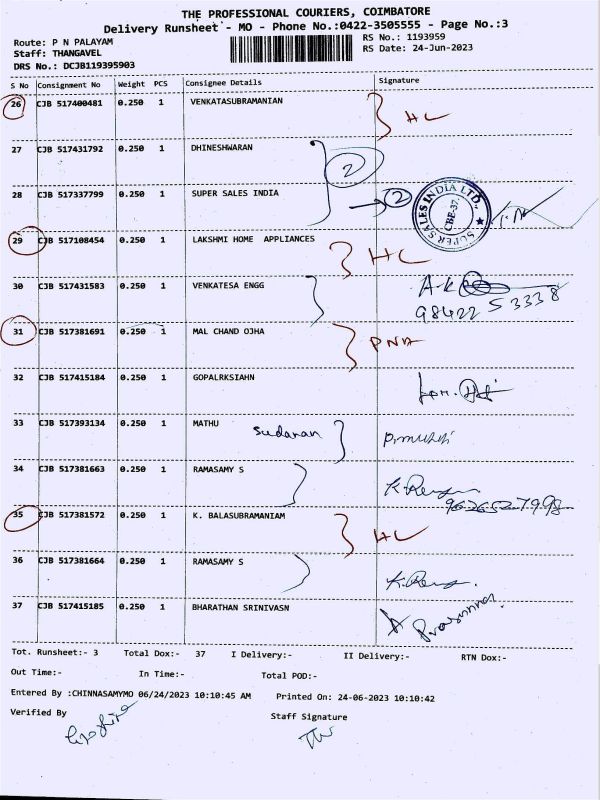 THE PROFESSIONAL COURIERS, COIMBATORE
Delivery Runsheet - MO - Phone No.:0422-3505555 - Page No.:3
Route: P N PALAYAM RS No.: 1193959
Staff: THANGAVEL RS Date: 24-Jun-2023
DRS No.: DCJB119395903
S No Consignment No Weight PCS Consignee Details Signature
26 CJB 517400481 0.250 1 VENKATASUBRAMANIAN HL
27 CJB 517431792 0.250 1 DHINESHWARAN 2
28 CJB 517337799 0.250 1 SUPER SALES INDIA 2 SUPER SALES INDIA LTD., CBE-37.
29 CJB 517108454 0.250 1 LAKSHMI HOME APPLIANCES HL
30 CJB 517431583 0.250 1 VENKATESA ENGG A-K
98422 53338
31 CJB 517381691 0.250 1 MAL CHAND OJHA PNA
32 CJB 517415184 0.250 1 GOPALRKSIAHN
33 CJB 517393134 0.250 1 MATHU sudanan
34 CJB 517381663 0.250 1 RAMASAMY S
35 CJB 517381572 0.250 1 K. BALASUBRAMANIAM HL
36 CJB 517381664 0.250 1 RAMASAMY S
37 CJB 517415185 0.250 1 BHARATHAN SRINIVASN
Tot. Runsheet:- 3 Total Dox:- 37 I Delivery:- II Delivery:- RTN Dox:-
Out Time:- In Time:- Total POD:-
Entered By :CHINNASAMYMO 06/24/2023 10:10:45 AM Printed On: 24-06-2023 10:10:42
Verified By Staff Signature